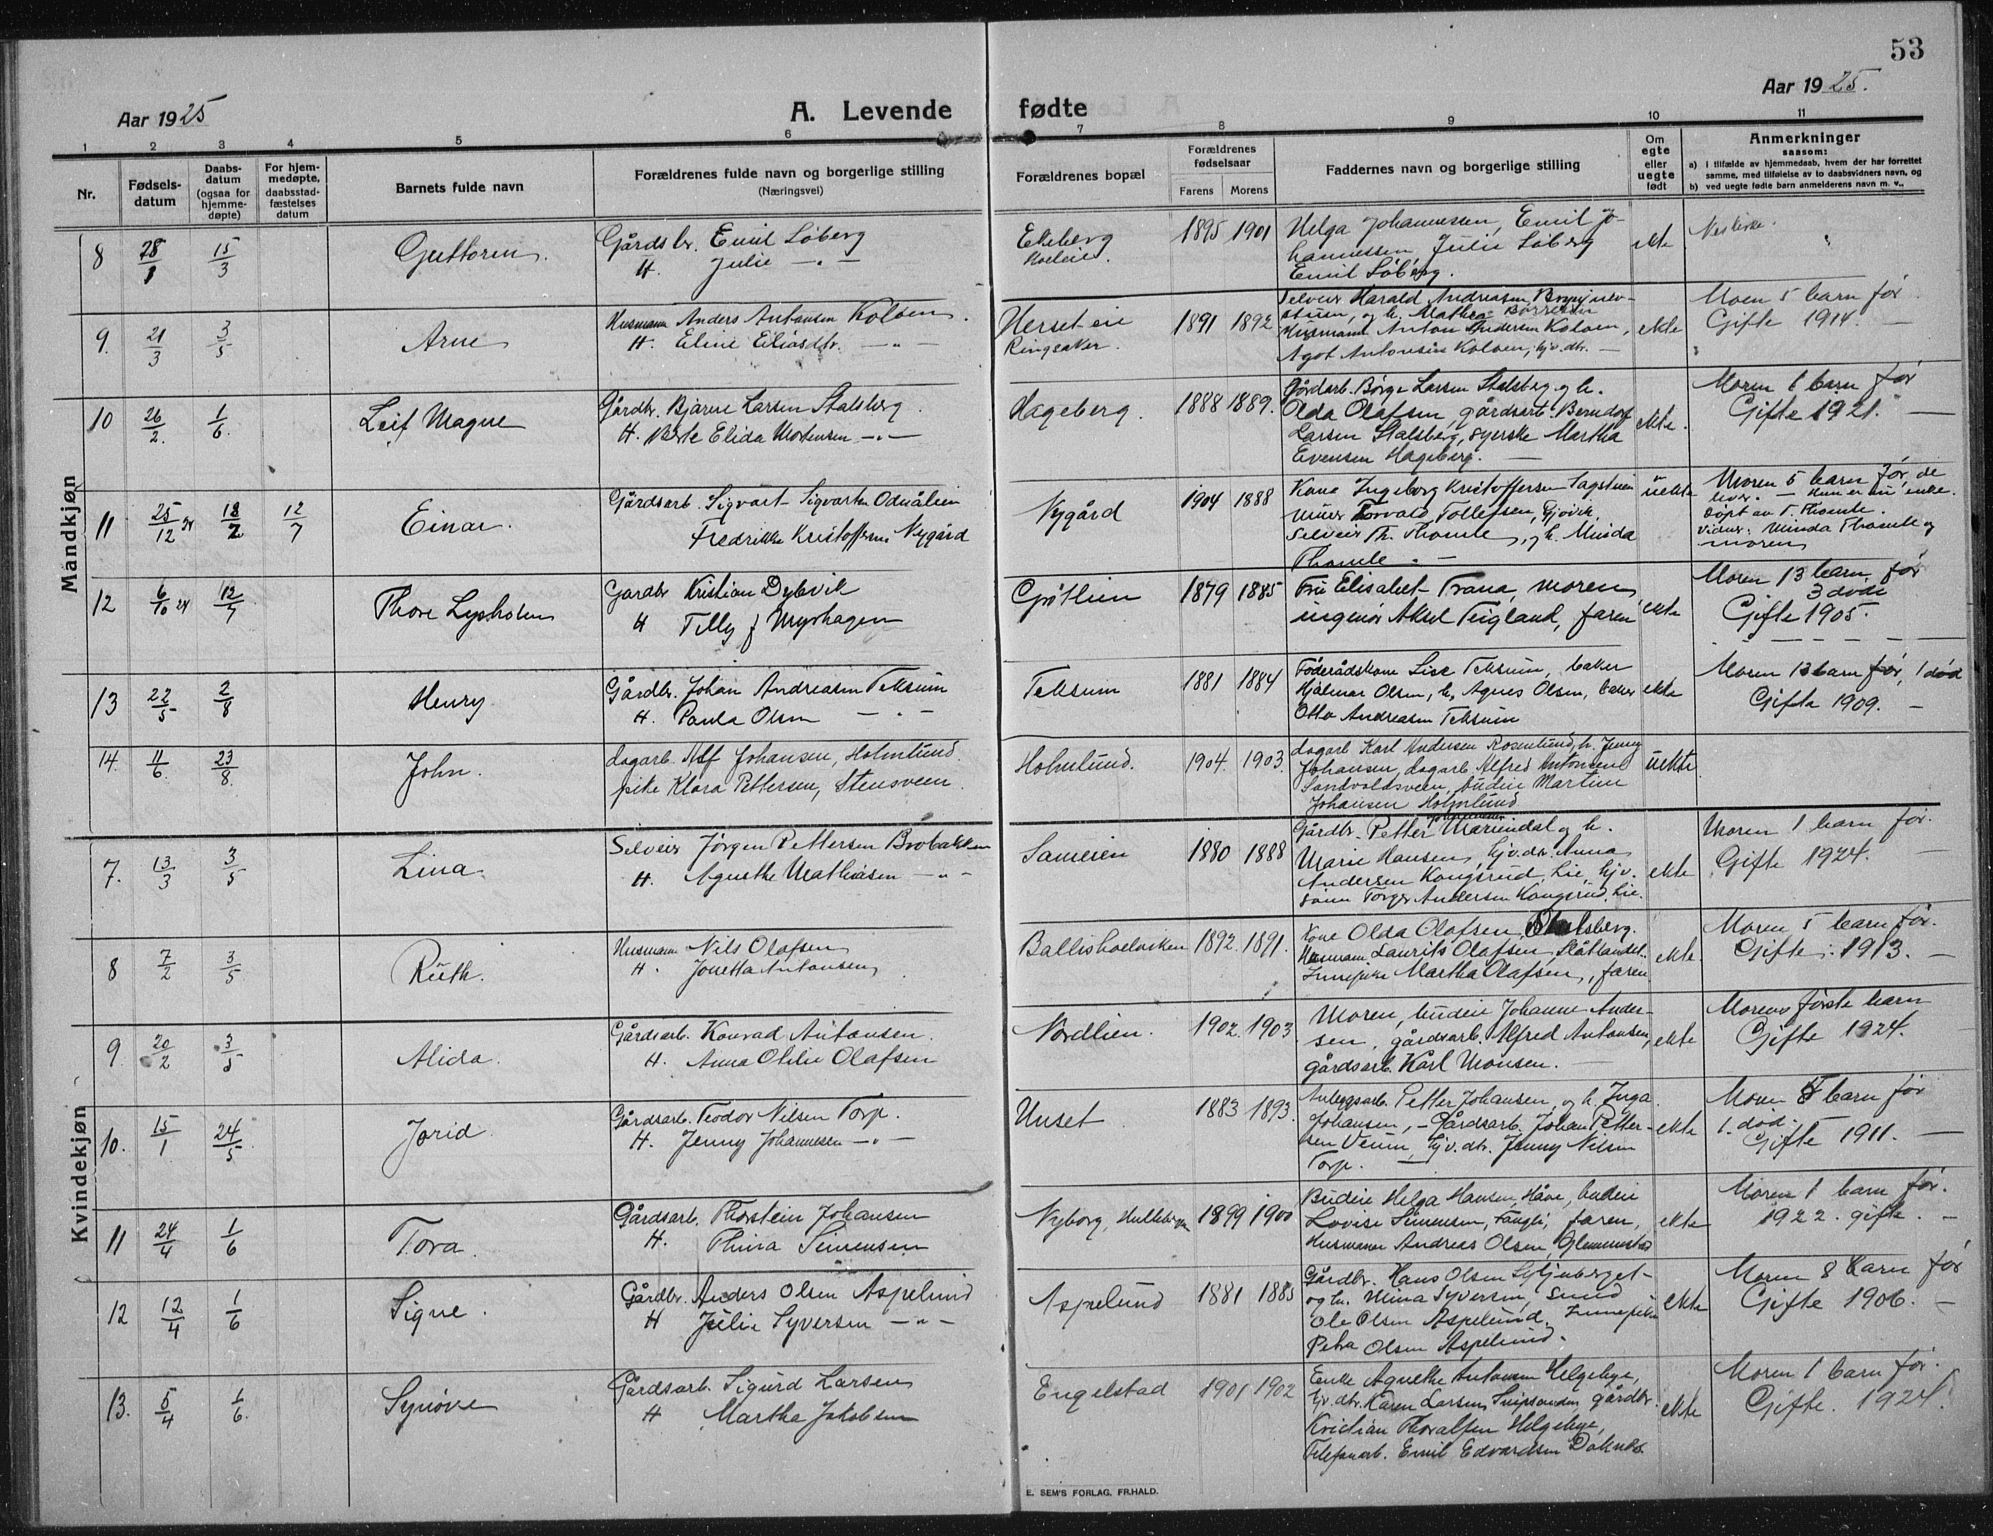 53
Aar 1925
A. Levende fødte
Aar 1925.
1 2 3 4 5 6 7 8 9 10 11
Nr.
Fødsels-
datum
Daabs-
datum
(ogsaa for
hjemme-
døpte)
For hjem-
medøpte,
daabsstad-
fæstelses
datum
Barnets fulde navn
Forældrenes fulde navn og borgerlige stilling
(Næringsvei)
Forældrenes bopæl
Forældrenes
fødselsaar
Farens Morens
Faddernes navn og borgerlige stilling
Om
egte
eller
uegte
født
Anmerkninger
saasom:
a) i tilfælde av hjemmedaab, hvem der har forrettet
samme, med tilføielse av to daabsvidners navn, og
b) ved uegte fødte barn anmelderens navn m. v..
Mandkjøn
8 28/1 15/3 Guttorm. Gårdsbr. Emil Løberg
H. Julie — " —
Ekeberg
1895 1901
Helga Johannessen, Emil Jo-
hannessen, Julie Løberg
Emil Løberg.
ekte
Neskirke.
9. 21/3 3/5 Arne
Husmann Anders Antonsen Koløen.
H. Eline Eliasdtr. — " —
Herset eie
Ringsaker.
1891 1892
Selveier Harald Andreasen
og h. Mathea Børresen
Husmann Anton Andersen Koloen,
Agot Antonsen Koloen, hjv. dtr. —
ekte
Moren 5 barn før
Gifte 1914. —
10 26/2. 1/6. Leif Magne
Gårdbr. Bjarne Larsen Stalsberg.
H. Berte Elida Mortensen — " —
Hageberg.
1888 1889.
Gårdarb. Børge Larsen Stalsberg og h.
Olda Olafsen, gårdsarb. Berndof
Larsen Stalsberg, syerske Martha
Evensen Hageberg. —
ekte.
Moren 6 barn før
Gifte 1921. —
11 25/12 24 18/7 12/7 Einar.
Gårdsarb. Sigvart Sigvartsen Odnålien
Fredrikke Kristoffersen Nygård
Nygård
1904 1888
Kone Ingeborg Kristoffersen Sagstuen
Torvald Tollefsen, Gjøvik,
Selveier Th. Thomle, og h. Minda
Thomle. —
uekte
Moren 5 barn før, de
lever. — Hun er nu enke.
Døpt av T. Thomle.
Vidner: Minda Thomle og
moren
12 6/10 24 12/7 Thore Lysholm
Gårdbr Kristian Dybvik
H Tilly f Myrhagen
Grøtlien
1879 1885
Fru Elisabet Trana, moren,
ingeniør Aksel Teigland, faren
ekte
Moren 13 barn før
3 døde
Gifte 1905.
13 22/5 2/8 Henry
Gårdbr. Johan Andreasen Teksum
H. Paula Olsen — " —
Teksum
1881 1884
Føderådskone Lise Teksum, baker
Hjalmar Olsen, h. Agnes Olsen, baker
Otto Andreasen Teksum
ekte
Moren 13 barn før, 1 død
Gifte 1909. —
14. 11/6. 23/8. John.
dagarb. Alf Johansen, Holmlund
pike Klara Pettersen, Stensveen.
Holmlund.
1904. 1903.
dagarb Karl Andersen Rosenlund, h. Jenny
Johansen, dagarb. Alfred Antonsen
Sandvoldsveen, budeie Martine
Johansen Holmlund
uekte
Kvindekjøn
7. 13/3 3/5 Lina.
Selveier Jørgen Pettersen Brobakken
H. Agnethe Mathiasen — " —
1880 1888
Gårdbr. Petter Mariendal og h.
Marie Hansen, hjv. dtr. Anna
Andersen Kongsrud, Lie, hjv.
sønn Torger Andersen Kongsrud, Lie.
ekte
Moren 1 barn før.
Gifte 1924. —
8 7/2 3/5 Ruth.
Husmann Nils Olafsen
H. Jonetta Antonsen
Ballishoelviken
1892. 1891.
Kone Olda Olafsen, Stalsberg.
Husmann. Laurits Olafsen,
Innepike Martha Olafsen, faren
ekte.
Moren 5 barn før.
Gifte: 1913. —
9. 20/2 3/5 Alida.
Gårdsarb. Konrad Antonsen.
H. Anna Otilie Olafsen
Nordlien.
1902. 1903.
Moren, budeie Johanne Ander-
sen, gårdsarb. Alfred Antonsen,
gårdsarb. Karl Monsen.
ekte
Morens første barn
Gifte 1924. —
10. 15/1 24/5 Jorid.
Gårdsarb. Teodor Nilsen Torp.
H. Jenny Johannesen — " —
Unset
1883 1893.
Anleggsarb. Petter Johansen, og h. Inga
Johansen, — Gårdsarb. Johan Petter-
sen Veum, hjv. dtr. Jenny Nilsen
Torp. —
ekte
Moren 8 barn før
1. død.
Gifte 1911. —
11 24/4 1/6 Tora.
Gårdsarb. Thorstein Johansen
H. Thina Simensen
Nyborg,
1899 1900
Budeie Helga Hansen Håve, budeie
Lovise Simensen, faren,
Husmann Andreas Olsen,
ekte
Moren 1 barn før.
1922. gifte. —
12 12/4 1/6 Signe.
Gårdbr. Anders Olsen Aspelund
H Julie Syversen — " —
Aspelund
1881 1885
Gårdbr. Hans Olsen
og h. Mina Syversen, smed
Ole Olsen Aspelund. Innepike
Petra Olsen Aspelund.
ekte
Moren 8 barn før
Gifte 1906. —
13. 5/4 1/6. Synøve
Gårdsarb. Sigurd Larsen
H Martha Jakobsen
Engelstad
1901 1902
Enke Agnethe Antonsen Helgebye,
hjv. dtr. Karen Larsen gårdbr.
Kristian Thoralfsen Helgebye,
Telefonarb. Emil Edvardsen Doknes.
ekte
Moren 1 barn før.
Gifte. 1924.
E. SEM'S FORLAG, FR.HALD.